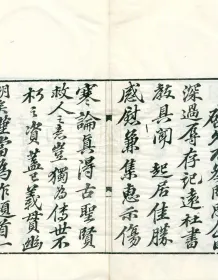 深過辱存記遠社書
教具闻起居佳勝
感慰兼集惠示傷
寒論真得古聖賢
救人之意豈獨為傳世不
朽之資蓋已義貫幽
明矣謹當為作題首一